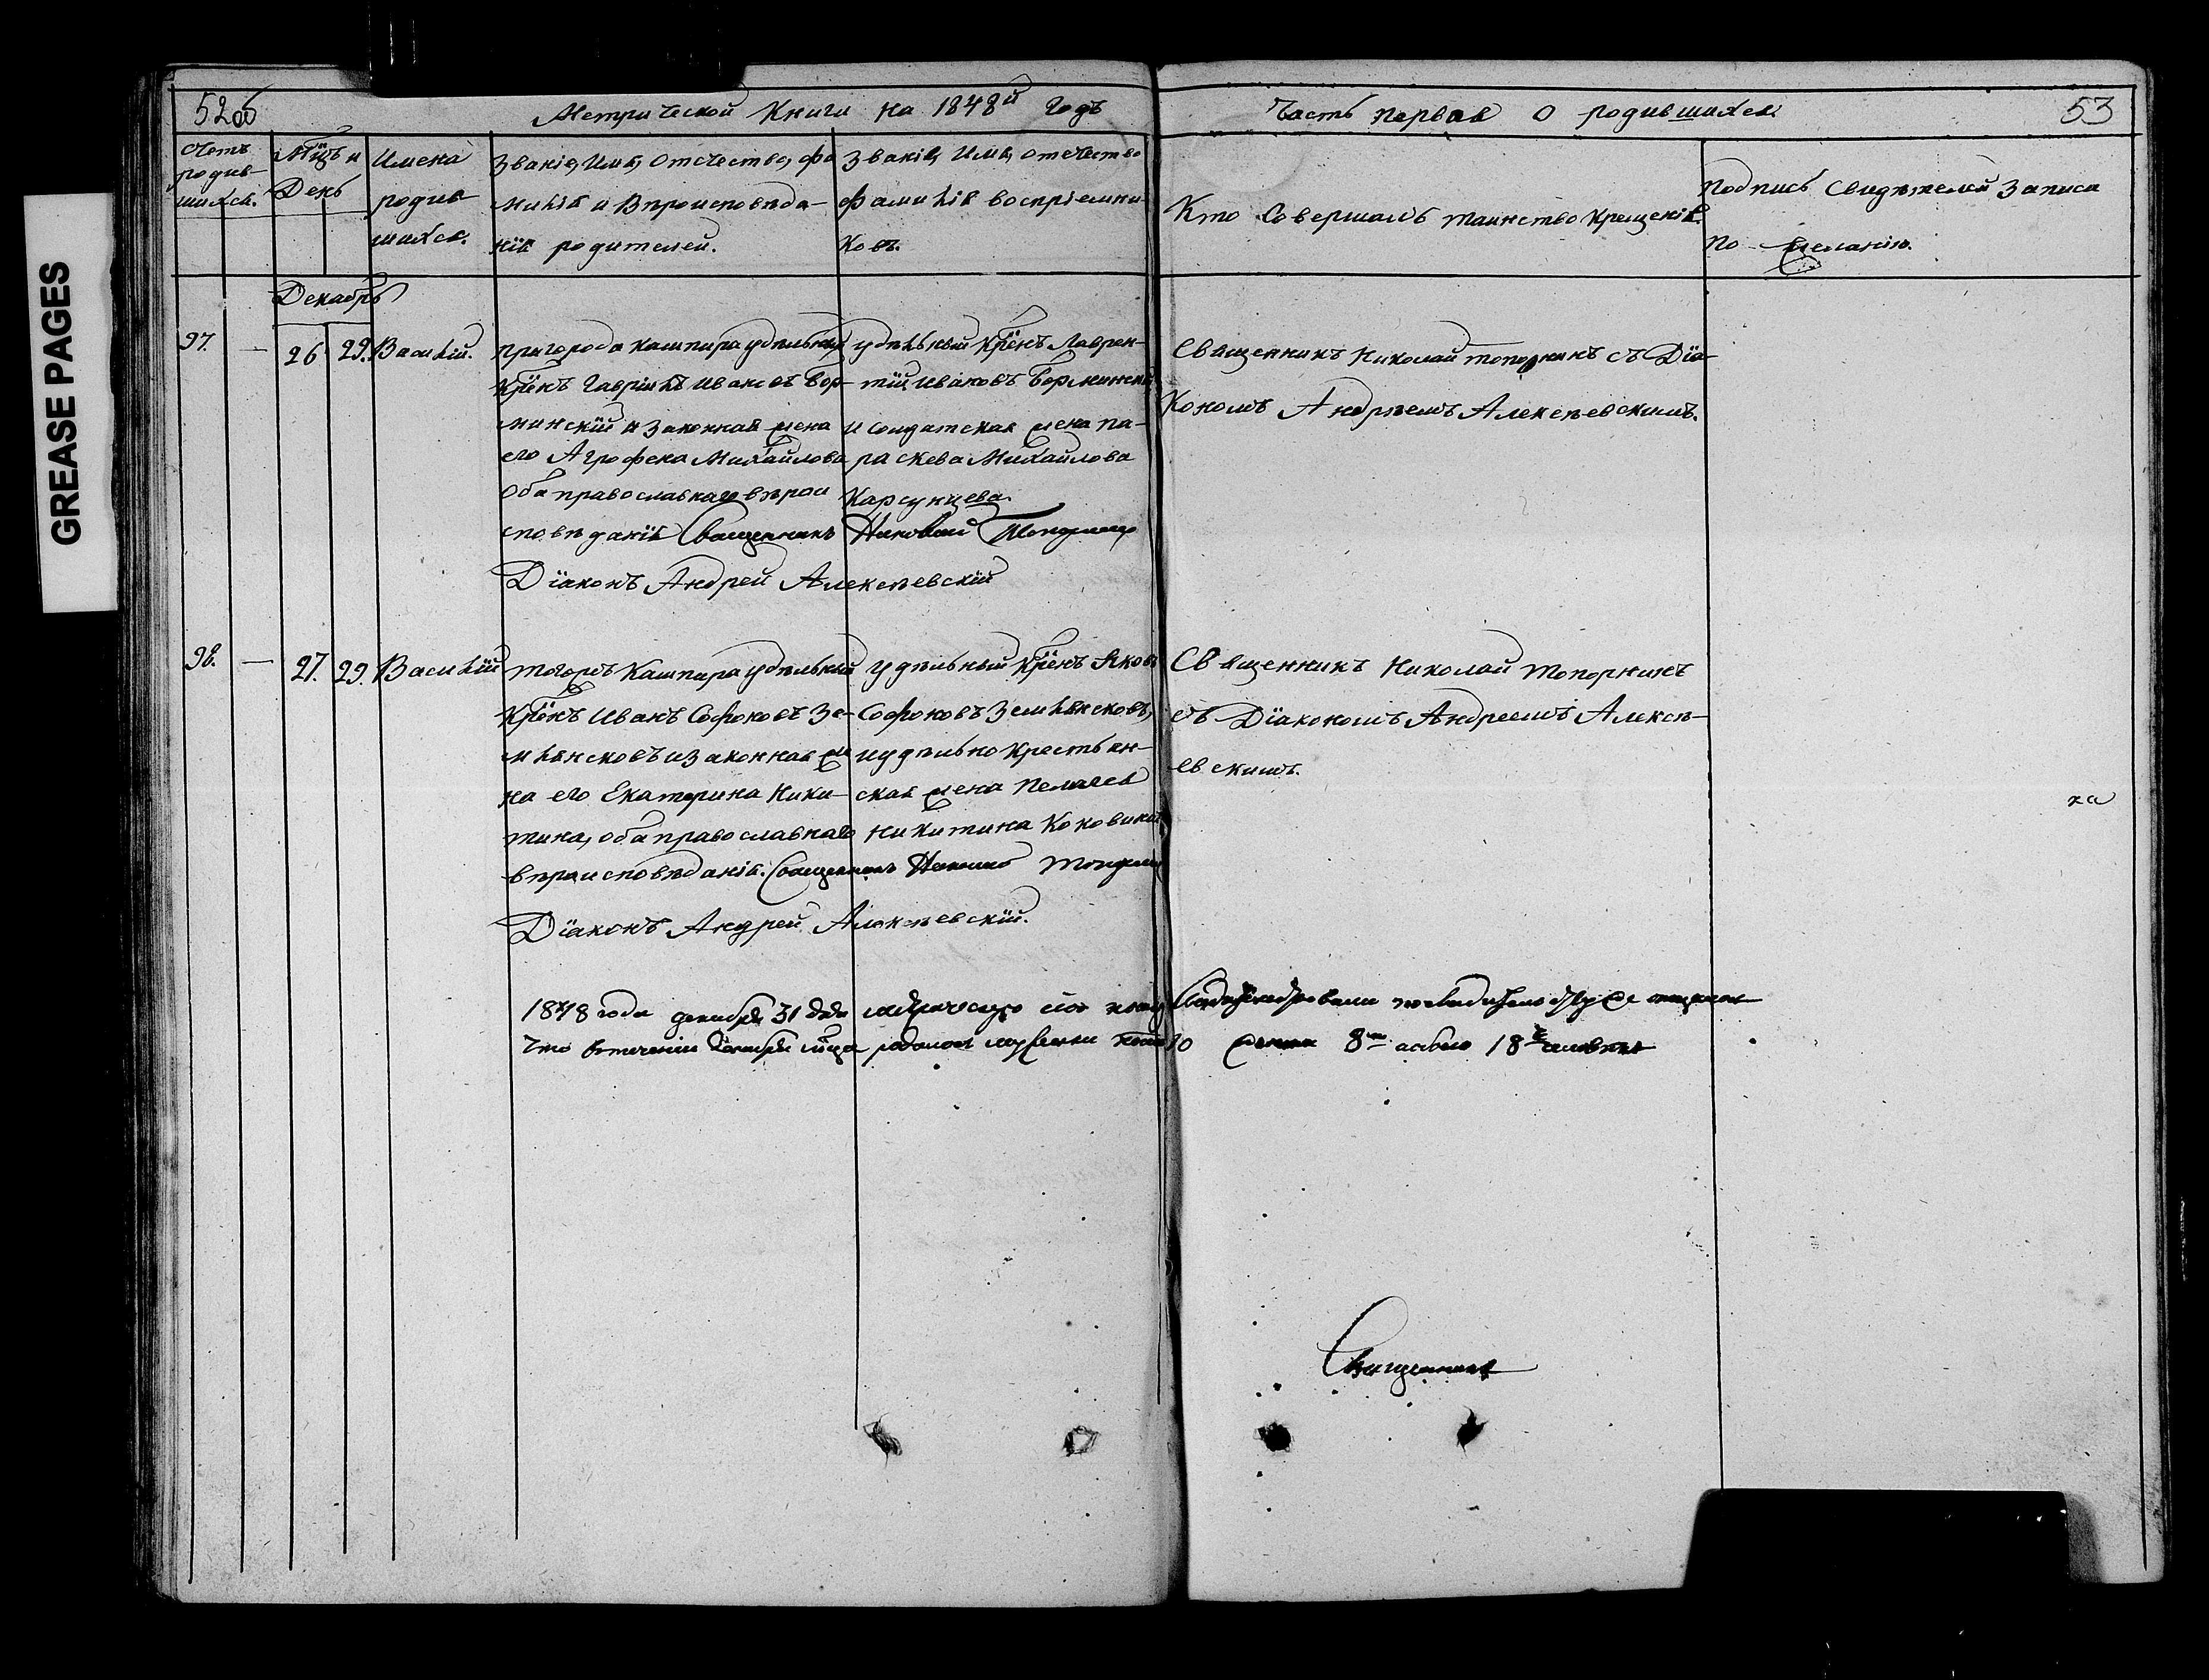 GREASE PAGES
52об
Метрической Книги на 1848й Годъ
Часть первая о родившихся
53
Счетъ
родив-
шихся.
Мцъ и
День
Имена
родив
шихся.
Званіе, Имя, отечество, фа
милія и Вѣроисповѣда-
нія родителей.
Званіе, Имя, отечество
фамилія воспріемни
ковъ.
Кто Совершалъ таинство крещенія.
Подпись свидѣтелей записи
по желанію.
Декабрь
97.
—
26.
29.
Василій.
пригорода кашпира удѣльный
Крёнъ Гаврилъ Ивановъ Бор-
минскій и законная жена
его Агрофена Михайлова
оба православнаго вѣрои
сповѣданія Священникъ Николай Топорнинъ
Діаконъ Андрей Алексѣевскій
удѣльный Крёнъ Лаврен-
тій Ивановъ Борминскій
и солдатская жена па-
раскева Михайлова
Карсунцева.
Священникъ Николай топорнинъ съ Діа-
кономъ Андрѣемъ Алексѣевскимъ.
98.
—
27.
29.
Василій
тогожъ Кашпира удѣльный
Крёнъ Иванъ Софроновъ Зе-
млянсковъ и законная же
на его Екатерина Ники-
тина, оба православнаго
вѣроисповѣданія. Священникъ Николай Топорнинъ
Діаконъ Андрей Алексѣевскій.
удѣльный Крёнъ Яковъ
Софроновъ Землянсковъ,
и удѣльно крестьян-
ская жена Пелагея
Никитина Коковина
Священникъ Николай топорнинъ
съ Діакономъ Андреемъ Алексѣ-
евскимъ.
1848 года декабря 31 дня
что въ теченіи Декабря мца 10 8 18
Священникъ